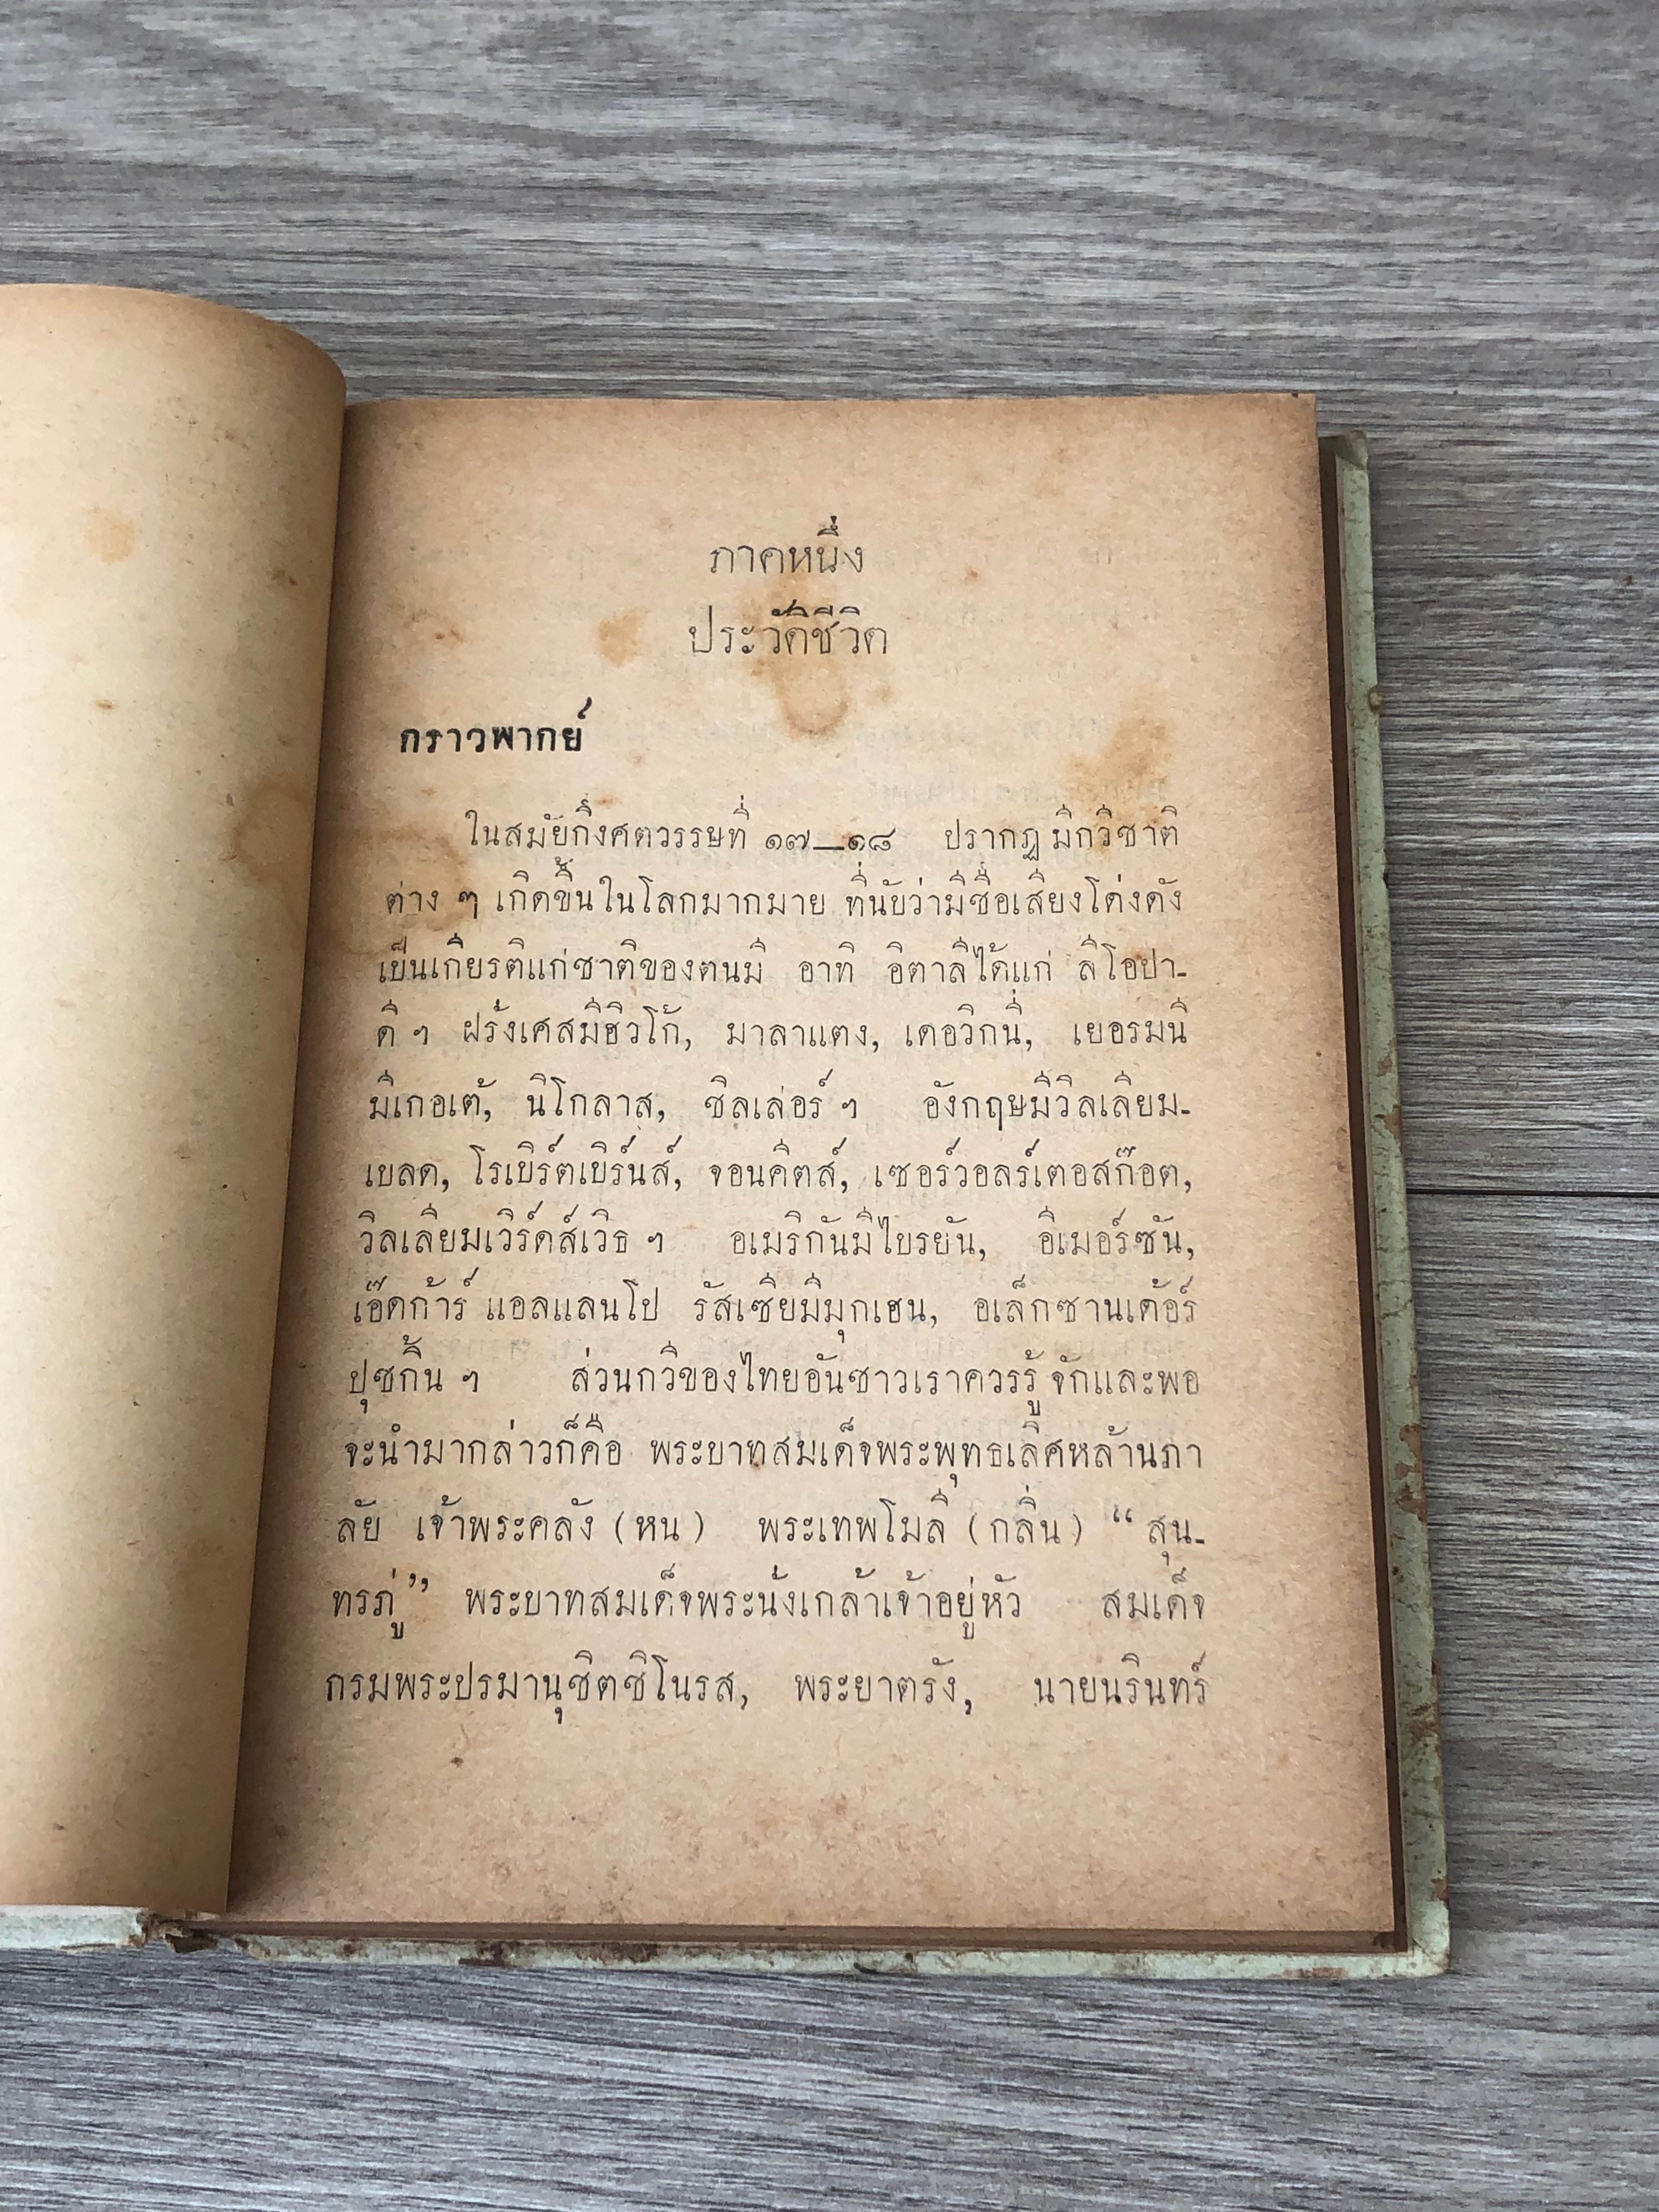 ภาคหนึ่ง
ประวัติชีวิต
กราวพากย์
ในสมัยกึ่งศตวรรษที่ ๑๗—๑๘ ปรากฏมีกวีชาติ
ต่าง ๆ เกิดขึ้นในโลกมากมาย ที่นับว่ามีชื่อเสียงโด่งดัง
เป็นเกียรติแก่ชาติของตนมี อาทิ อิตาลีได้แก่ ลีโอปา-
ดี ฯ ฝรั่งเศสมีฮิวโก้, มาลาแตง, เดอวิกนี่, เยอรมนี
มีเกอเต้, นิโกลาส, ชิลเล่อร์ ฯ อังกฤษมีวิลเลียม-
เบลด, โรเบิร์ตเบิร์นส์, จอนคีตส์, เซอร์วอลร์เตอสก๊อต,
วิลเลียมเวิร์ดส์เวิธ ฯ อเมริกันมีไบรยัน, อีเมอร์ซัน,
เอ๊ดก้าร์ แอลแลนโป รัสเซียมีมุกเฮน, อเล็กซานเด้อร์
ปุชกิ้น ฯ ส่วนกวีของไทยอันชาวเราควรรู้จักและพอ
จะนำมากล่าวก็คือ พระบาทสมเด็จพระพุทธเลิศหล้านภา
ลัย เจ้าพระคลัง (หน) พระเทพโมลี (กลิ่น) “ สุน-
ทรภู่” พระบาทสมเด็จพระนั่งเกล้าเจ้าอยู่หัว สมเด็จ
กรมพระปรมานุชิตชิโนรส, พระยาตรัง, นายนรินทร์